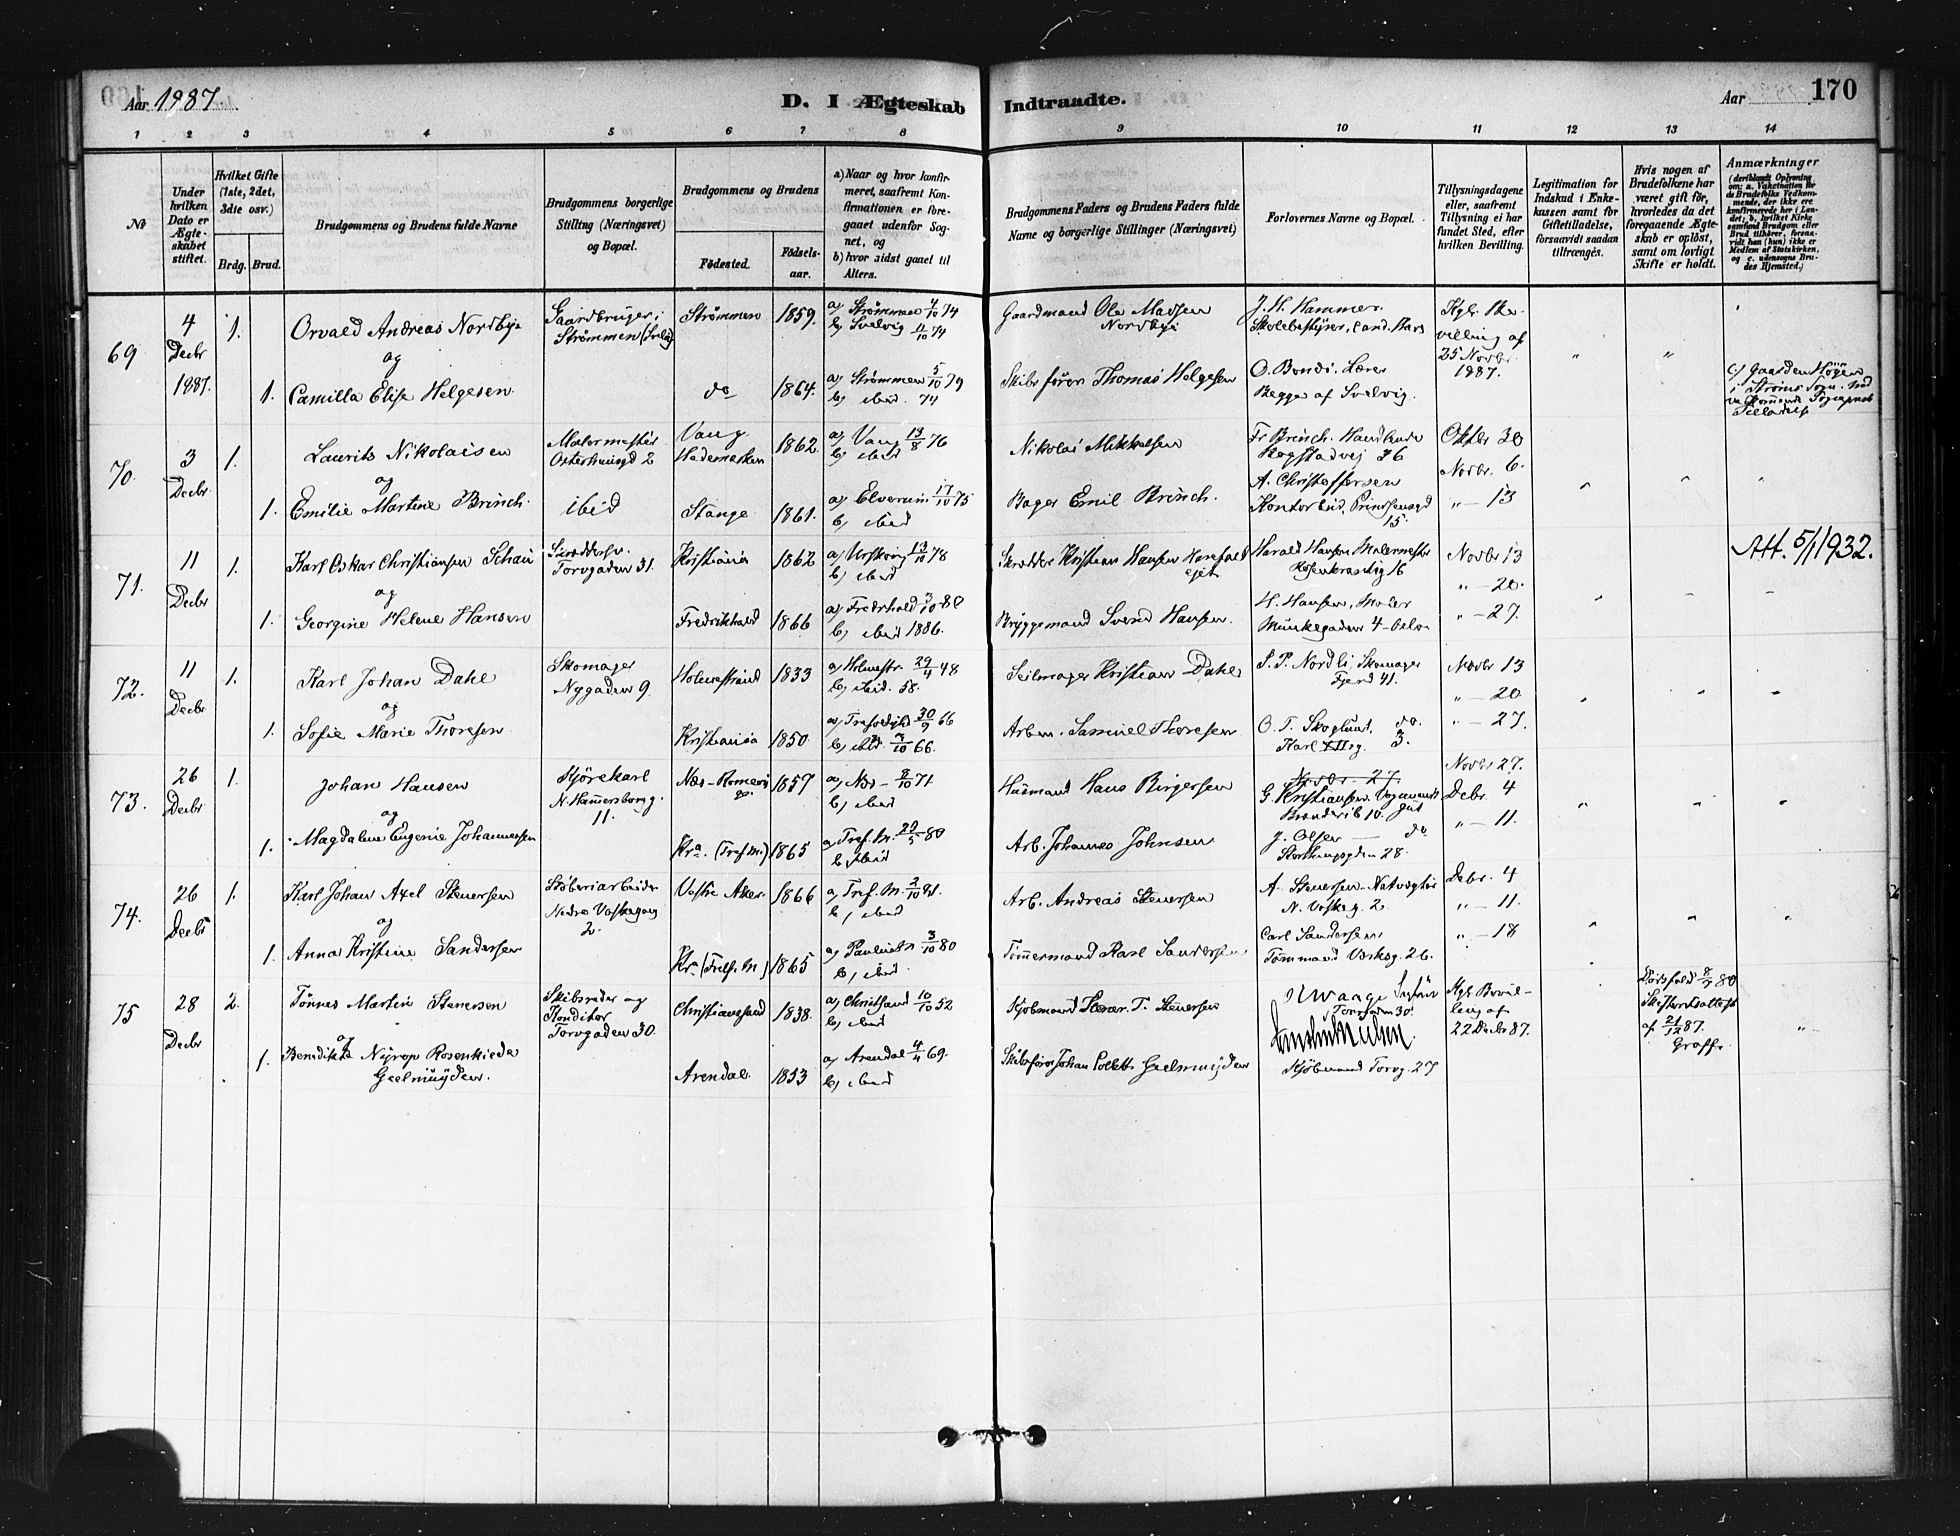 Aar 1887.
D. I Ægteskab Indtraadte.
Aar 170
1 2 3 4 5 6 7 8 9 10 11 12 13 14
№
Under hvilken Dato er Ægteskabet stiftet.
Hvilket Gifte (1ste, 2det, 3die osv.)
Brdg. Brud.
Brudgommens og Brudens fulde Navne
Brudgommens borgerlige Stilling (Næringsvei) og Bopæl.
Brudgommens og Brudens
Fødested. Fødselsaar.
a) Naar og hvor konfirmeret, saafremt Konfirmationen er foregaaet udenfor Sognet, og
b) hvor sidst gaaet til Alters.
Brudgommens Faders og Brudens Faders fulde Navne og borgerlige Stillinger (Næringsvei)
Forlovernes Navne og Bopæl.
Tillysningsdagene eller, saafremt Tillysning ei har fundet Sted, efter hvilken Bevilling.
Legitimation for Indskud i Enkekassen samt for Giftetilladelse, forsaavidt saadan tiltrænges.
Hvis nogen af Brudefolkene har været gift før, hvorledes da det foregaaende Ægteskab er opløst, samt om lovligt Skifte er holdt.
Anmærkninger
69 4 Decbr 1887. 1. Orvald Andreas Nordbye Gaardbruger i Strømmen (Svelvig) Strømmen 1859. a) Strømmen 4/10 74 b) Svelvig 11/10 74 Gaardmand Ole Madsen Nordbye J. H. Hammer Skolebestyrer, Cand. Kgl. Bevilling af 25 Novbr. 1887. " "
og
1. Camilla Elise Helgesen do 1864. a) Strømmen 5/10 79 b) ibid. 74 Skibsfører Thomas Helgesen O. Bondi. Lærer Begge af Svelvig. c) Gaarden i Strøms Sogn
70. 3 Decbr. 1. Laurits Nikolaisen Malermester Osterhausgd 2 Vang Hedemarken 1862. a) Vang 13/8 76 b) ibid Nikolai Mikkelsen Fr Brinch. Handlende Bogstadvej 36 Oktbr 30 Novbr. 6.
og
1. Emilie Martine Brinch. ibid Stange 1861. a) Elverum 17/10 75 b) ibid Bager Emil Brinch. A. Christoffersen Kontorbud, Prindsensgd 15. " — 13 " " "
71. 11 Decbr 1. Karl Oskar Christiansen Schau Skræddersv. Torvgaden 31. Kristiania 1862 a) Urskoug 13/10 78 b) ibid Skrædder Kristian Hansen Harald Hansen Malermester Rosenkrantzg 16 Novbr 13 " — 20. Att. 5/1 1932.
og
1. Georgine Helene Hansen Fredrikshald 1866 a) Fredrhald 3/10 80 b) ibid 1886. Bryggemand Svend Hansen. H. Hansen, Maler Munkegaden 4 - Oslo " — 27. " " "
72. 11 Decbr 1. Karl Johan Dahl Skomager Nygaden 9. Holmestrand 1833 a) Holmestr. 29/4 48 b) ibid. 58. Seilmager Kristian Dahl S. P. Nordli, Skomager 41. Novbr 13 " — 20
og
1. Sofie Marie Thoresen Kristiania 1850. a) 30/9 66 b) ibid. 7/10 66. Arbm. Samuel Thoresen O. T. Skoglund do. Karl XII g. 3. " — 27. " " "
73. 26 Decbr 1. Johan Hansen Kjørekarl N. Hammersborgg. 11. Næs - Romerige 1857 a) Næs - 8/10 71 b) ibid Husmand Hans Birgersen Novbr. 27. G. Kristiansen. Vognmand Novbr 27. Debr. 4
og
1. Magdalene Eugenie Johannessen Kra. (Tref. M.) 1865 a) Tref. M. 29/5 80 b) ibid Arb. Johannes Johnsen J. Olsen — do Storthingsgden 28. " — 11. " " "
74. 26 Decbr 1. Karl Johan Axel Stenersen Støberiarbeider Nedre Voldsgang 2. Vestre Aker 1866 a) Tref. M. 2/10 81. b) ibid Arb. Andreas Stenersen A. Stenersen - Natvægter Debr. 4 " — 11.
og
1. Anna Kristine Sandersen Kra (Tref. M) 1865 a) Paulus M 3/10 80 b) ibid. Tømmermand Karl Sandersen Carl Sandersen Tømmand 26. " — 18 " " "
75 28 Decbr 2. Tønnes Martin Stenersen Skibsreder og Konditor Torvgaden 30. Christianssand 1838. a) Christsand 10/10 52 b) ibid Kjøbmand Stener. T. Stenersen Waage Torvgaden 30. Kgl. Bevilling af 22 Decbr 87. Dødsfald 8/7 80 Skifteretsattest af 21/12 87. "
og
1. Benedikte Nyrop Rosenkilde Geelmuyden. Arendal. 1853 a) Arendal 4/4 69. b) ibid Skibsfører Johan Collett Geelmuyden Kjøbmand Torvg. 27